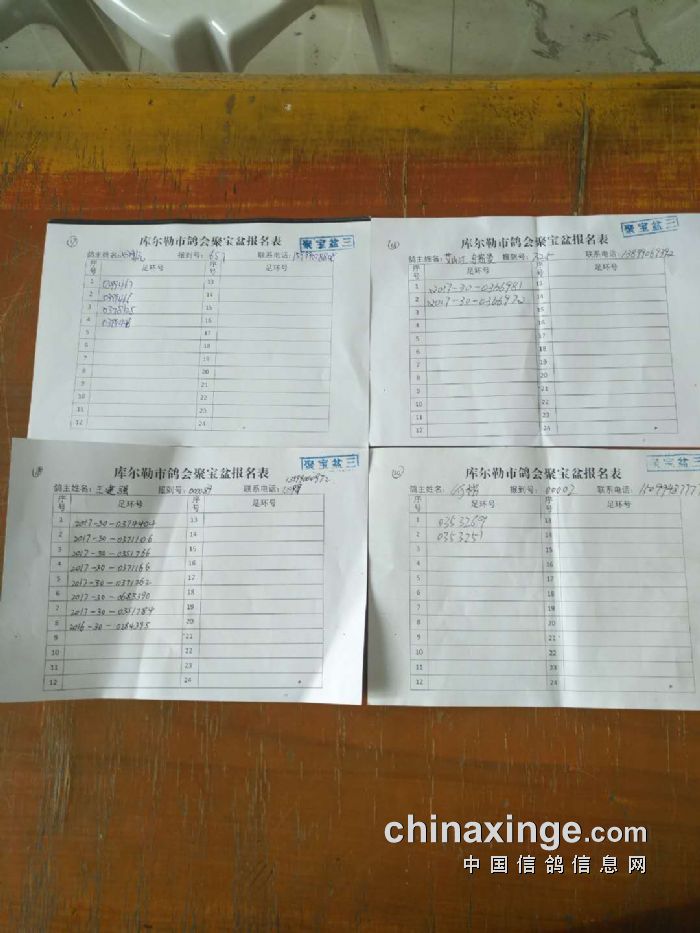 库尔勒市鸽会聚宝盆报名表
聚宝盆三
鸽主姓名: 报到号: 657 联系电话:
序号 足环号 序号 足环号
1 13
2 14
3 15
4 16
5 17
6 18
7 19
8 20
9 21
10 22
11 23
12 24
库尔勒市鸽会聚宝盆报名表
聚宝盆三
鸽主姓名: 报到号: 联系电话:
序号 足环号 序号 足环号
1 2017-30-0366981 13
2 2017-30-0366972 14
3 15
4 16
5 17
6 18
7 19
8 20
9 21
10 22
11 23
12 24
库尔勒市鸽会聚宝盆报名表
聚宝盆三
鸽主姓名: 王建疆 报到号: 联系电话:
序号 足环号 序号 足环号
1 13
2 2017-30-0371106 14
3 2017-30-0351766 15
4 2017-30-0371166 16
5 2017-30-0371762 17
6 2017-30-0685390 18
7 2017-30-0351784 19
8 2016-30-0284395 20
9 21
10 22
11 23
12 24
库尔勒市鸽会聚宝盆报名表
聚宝盆三
鸽主姓名: 报到号: 00003 联系电话:
序号 足环号 序号 足环号
1 0353269 13
2 0353251 14
3 15
4 16
5 17
6 18
7 19
8 20
9 21
10 22
11 23
12 24
chinaxinge.com
中国信鸽信息网